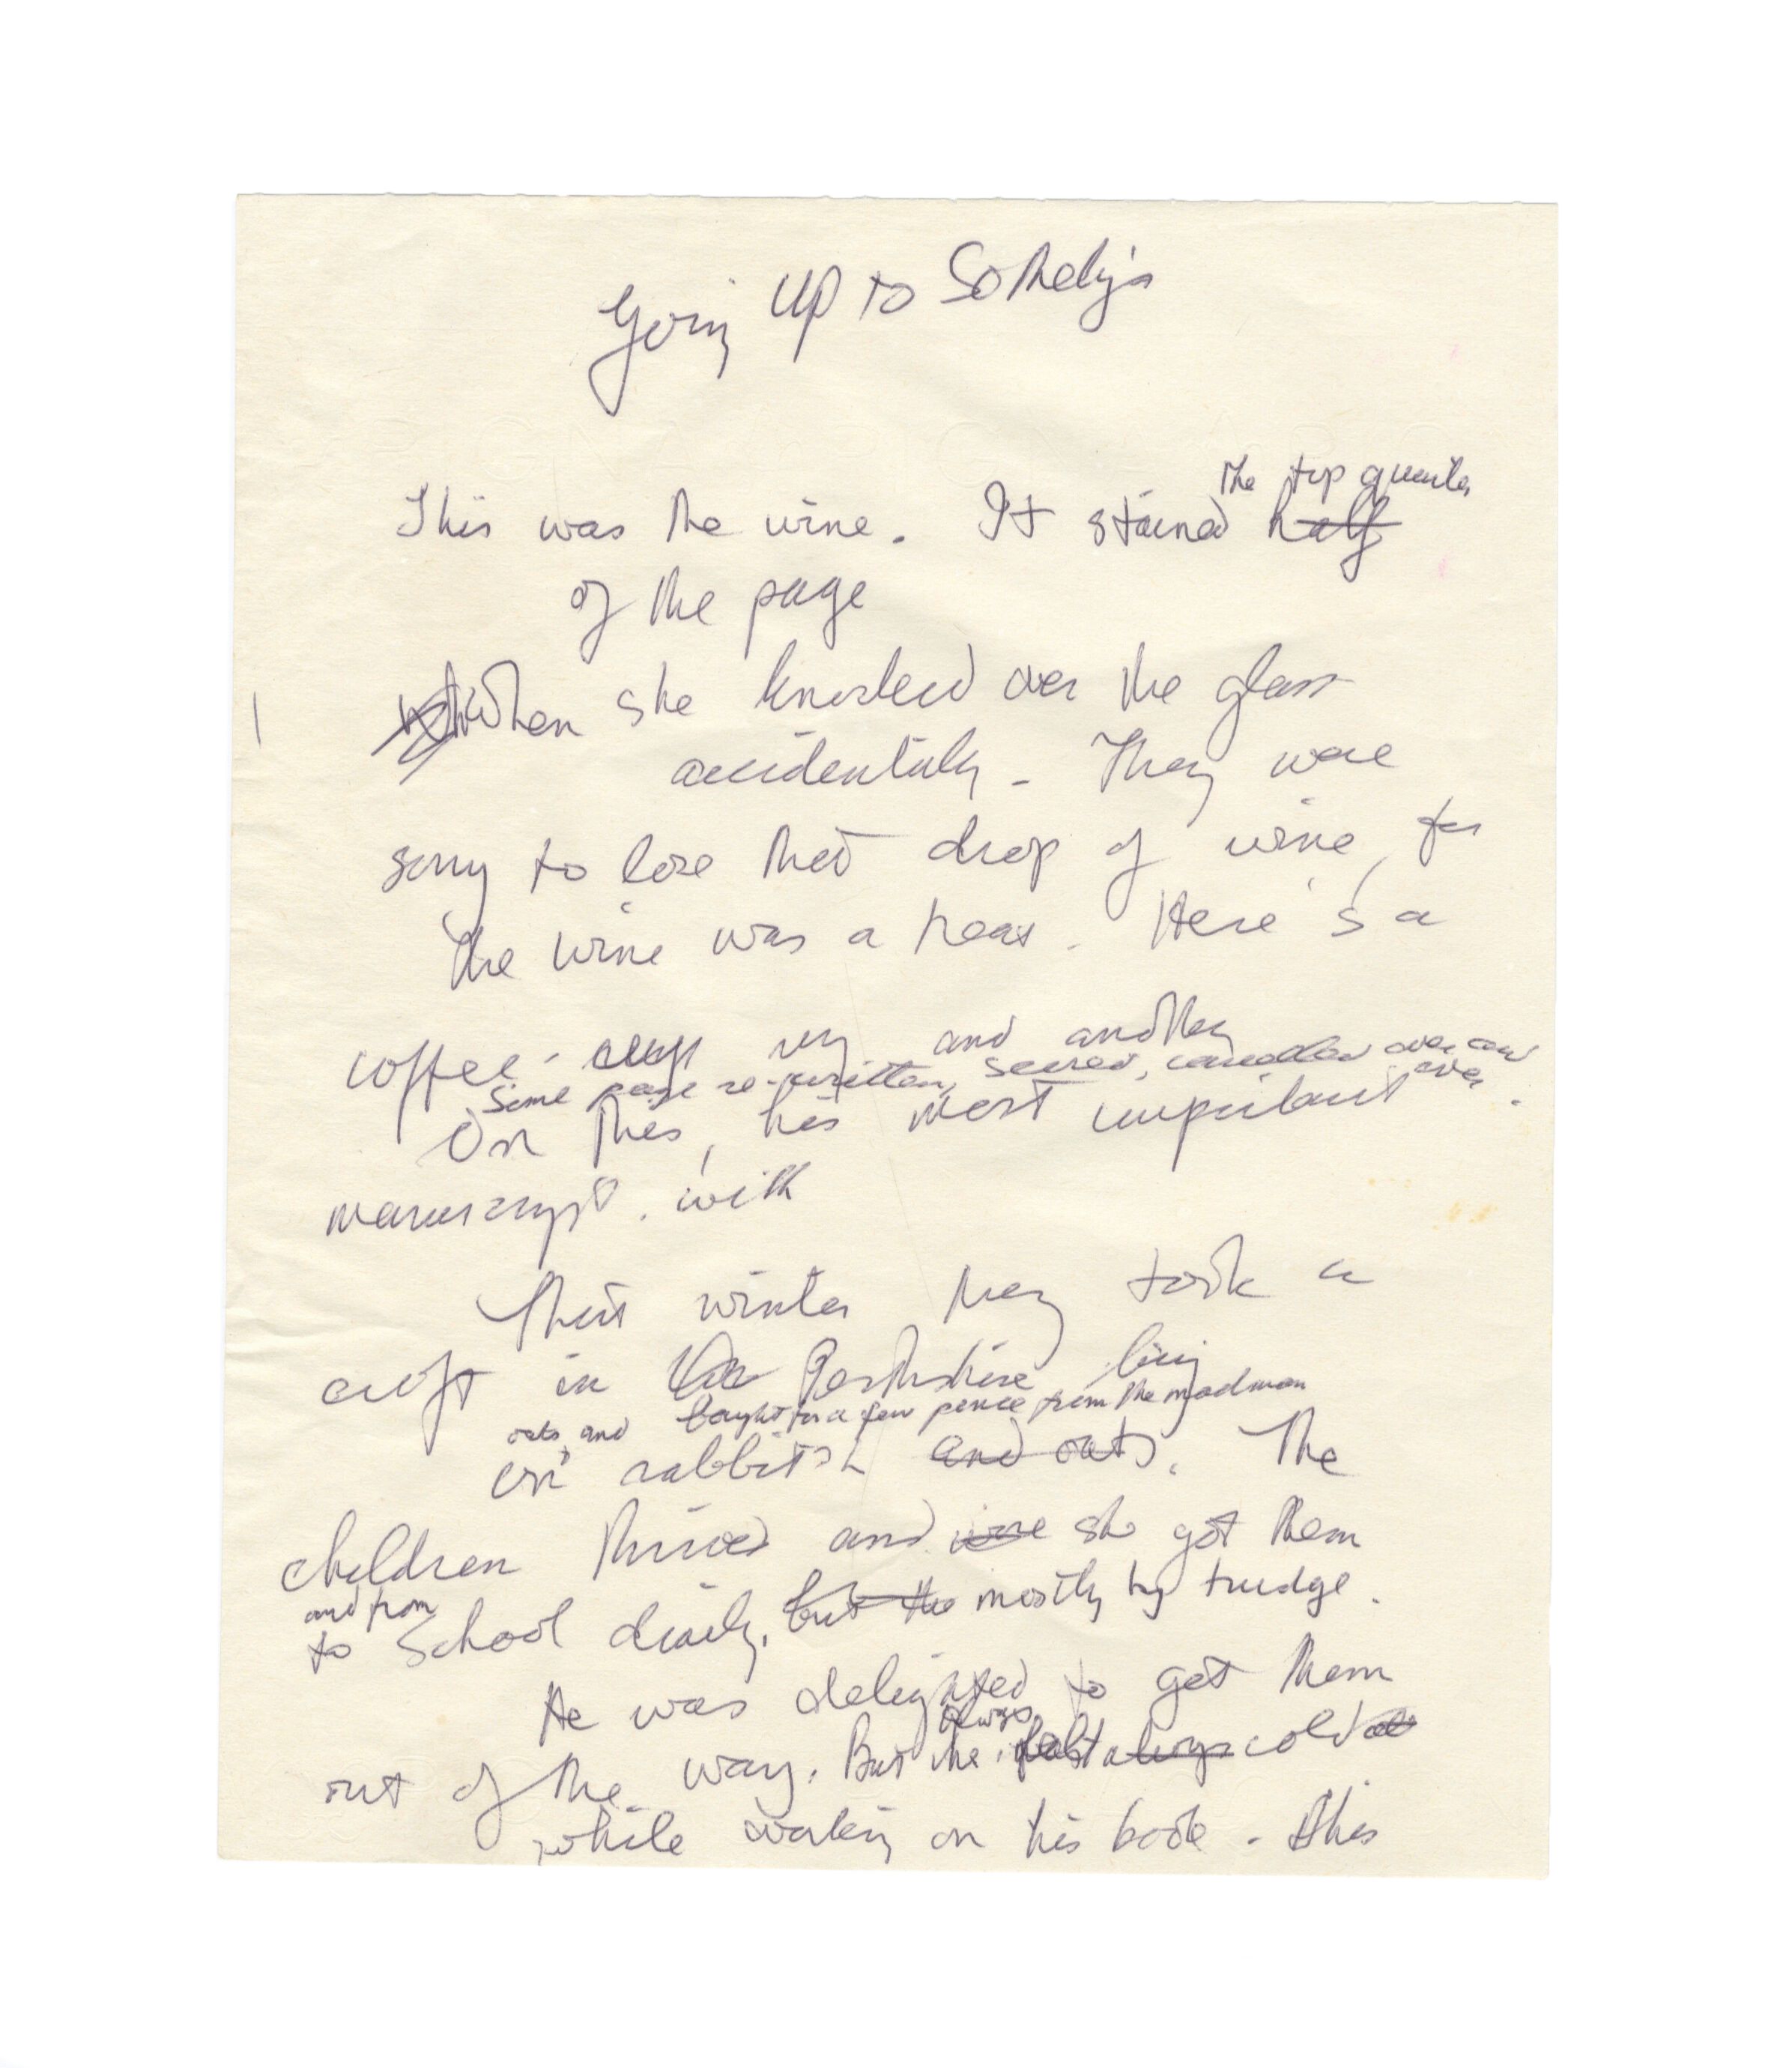 Going up to Sotheby's
the top quarter
This was the wine. It stained half
of the page
When she knocked over the glass
accidentally. They were
sorry to lose that drop of wine, for
the wine was a treat. Here's a
coffee-cup ring and another
Some page re-written, scored, cancelled over and over.
On this, his most important
manuscript. with
That winter they took a
croft in Perthshire living
oats, and bought for a few pence from the madman
on rabbits and oats. The
children thrived and she got them
and from
to school daily, but the mostly by trudge.
He was delighted to get them
always
out of the way. But he felt always cold
while working on his book. This